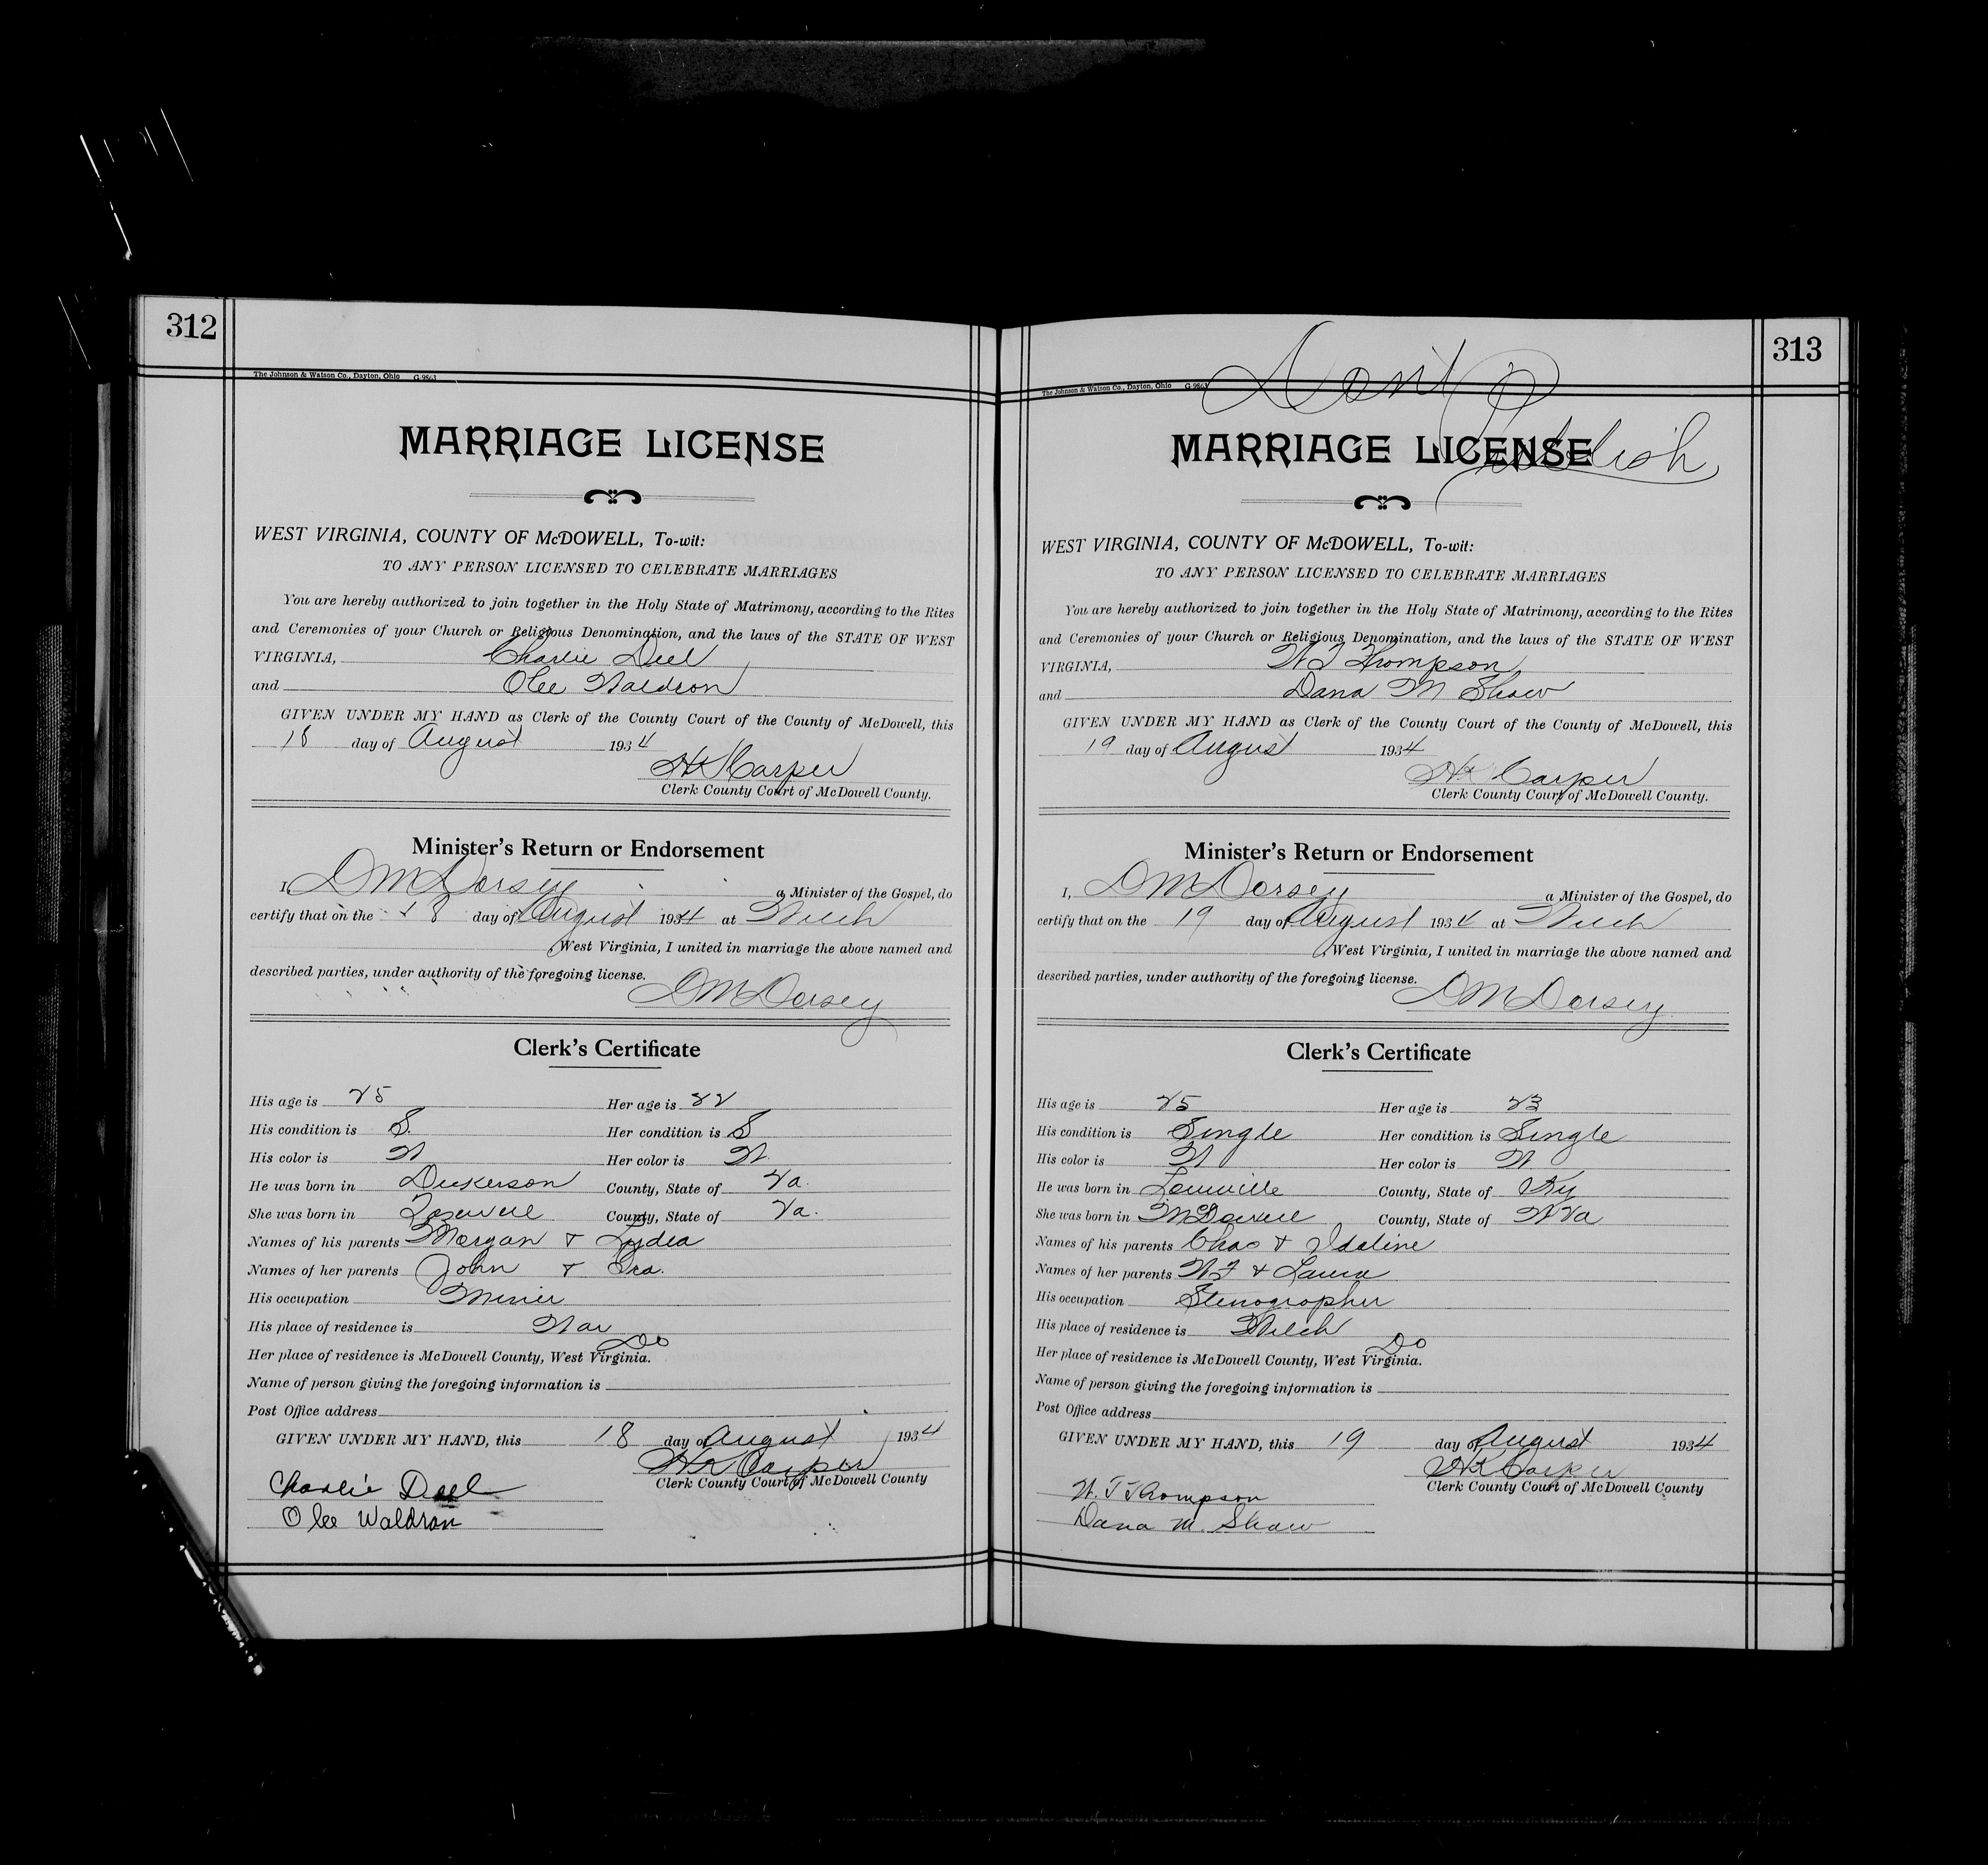 312
The Johnson & Watson Co., Dayton, Ohio G 9863
MARRIAGE LICENSE
WEST VIRGINIA, COUNTY OF McDOWELL, To-wit:
TO ANY PERSON LICENSED TO CELEBRATE MARRIAGES
You are hereby authorized to join together in the Holy State of Matrimony, according to the Rites
and Ceremonies of your Church or Religious Denomination, and the laws of the STATE OF WEST
VIRGINIA, Charlie Deel
and Olee Waldron
GIVEN UNDER MY HAND as Clerk of the County Court of the County of McDowell, this
18 day of August 1934
Carper
Clerk County Court of McDowell County.
Minister's Return or Endorsement
I, DM Dorsey a Minister of the Gospel, do
certify that on the 18 day of August 1934 at Welch
West Virginia, I united in marriage the above named and
described parties, under authority of the foregoing license.
DM Dorsey
Clerk's Certificate
His age is 25 Her age is 22
His condition is S. Her condition is S
His color is W Her color is W.
He was born in Dickerson County, State of Va.
She was born in Tazewell County, State of Va.
Names of his parents Morgan & Lydia
Names of her parents John & Ira.
His occupation Miner
His place of residence is War
Her place of residence is McDowell County, West Virginia. Do
Name of person giving the foregoing information is
Post Office address
GIVEN UNDER MY HAND, this 18 day of August 1934
Carper
Clerk County Court of McDowell County
Charlie Deel
Olee Waldron
313
Dont Publish
The Johnson & Watson Co., Dayton, Ohio G 9863
MARRIAGE LICENSE
WEST VIRGINIA, COUNTY OF McDOWELL, To-wit:
TO ANY PERSON LICENSED TO CELEBRATE MARRIAGES
You are hereby authorized to join together in the Holy State of Matrimony, according to the Rites
and Ceremonies of your Church or Religious Denomination, and the laws of the STATE OF WEST
VIRGINIA, W T Thompson
and Dana M Shaw
GIVEN UNDER MY HAND as Clerk of the County Court of the County of McDowell, this
19 day of August 1934
Carper
Clerk County Court of McDowell County.
Minister's Return or Endorsement
I, DM Dorsey a Minister of the Gospel, do
certify that on the 19 day of August 1934 at Welch
West Virginia, I united in marriage the above named and
described parties, under authority of the foregoing license.
DM Dorsey
Clerk's Certificate
His age is 25 Her age is 23
His condition is Single Her condition is Single
His color is W Her color is W
He was born in Louiville County, State of Ky
She was born in McDowell County, State of W Va
Names of his parents Chas & Idaline
Names of her parents W F & Laura
His occupation Stenographer
His place of residence is Welch
Her place of residence is McDowell County, West Virginia. Do
Name of person giving the foregoing information is
Post Office address
GIVEN UNDER MY HAND, this 19 day of August 1934
Carper
Clerk County Court of McDowell County
W. T Thompson
Dana M. Shaw